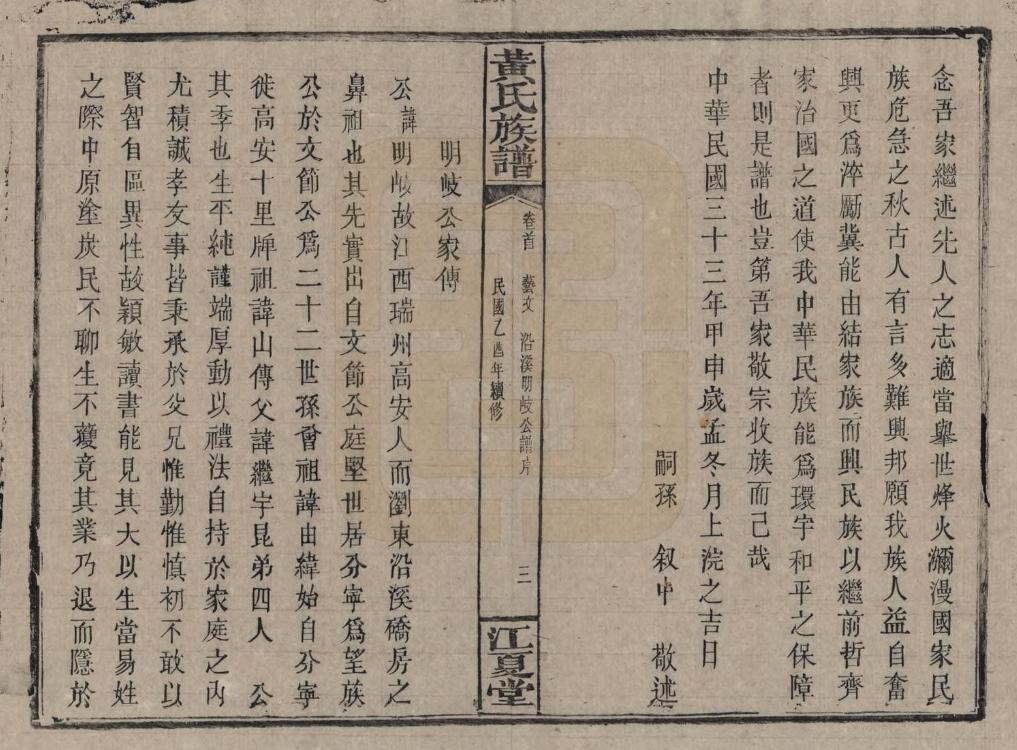 念吾家繼述先人之志適當舉世烽火瀰漫國家民
族危急之秋古人有言多難興邦願我族人益自奮
興更爲淬勵冀能由結家族而興民族以繼前哲齊
家治國之道使我中華民族能爲環宇和平之保障
者則是譜也豈第吾家敬宗收族而己哉
中華民國三十三年甲申歲孟冬月上浣之吉日
嗣孫 叙中 敬述
黃氏族譜
卷首 藝文 沿溪明岐公譜序
民國乙酉年續修
三
江夏堂
明岐公家傳
公諱明岐故江西瑞州高安人而瀏東沿溪礄房之
鼻祖也其先實出自文節公庭堅世居分寧爲望族
公於文節公爲二十二世孫曾祖諱由緯始自分寧
徙高安十里牌祖諱山傳父諱繼宇昆弟四人 公
其季也生平純謹端厚動以禮法自持於家庭之內
尤積誠孝友事皆秉承於父兄惟勤惟慎初不敢以
賢智自區異性故穎敏讀書能見其大以生當易姓
之際中原塗炭民不聊生不獲竟其業乃退而隱於